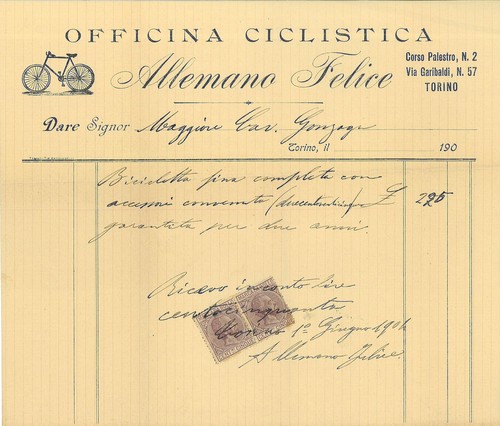 OFFICINA CICLISTICA
Allemano Felice
Corso Palestro, N. 2
Via Garibaldi, N. 57
TORINO
Dare Signor Maggiore Cav. Gonzaga
Torino, li 190
Bicicletta fina completa con
accessori convenuta (duecentoventicinque) £ 225
garantita per due anni.
Ricevo in conto lire
centocinquanta
Torino 1º Giugno 1904
Allemano Felice